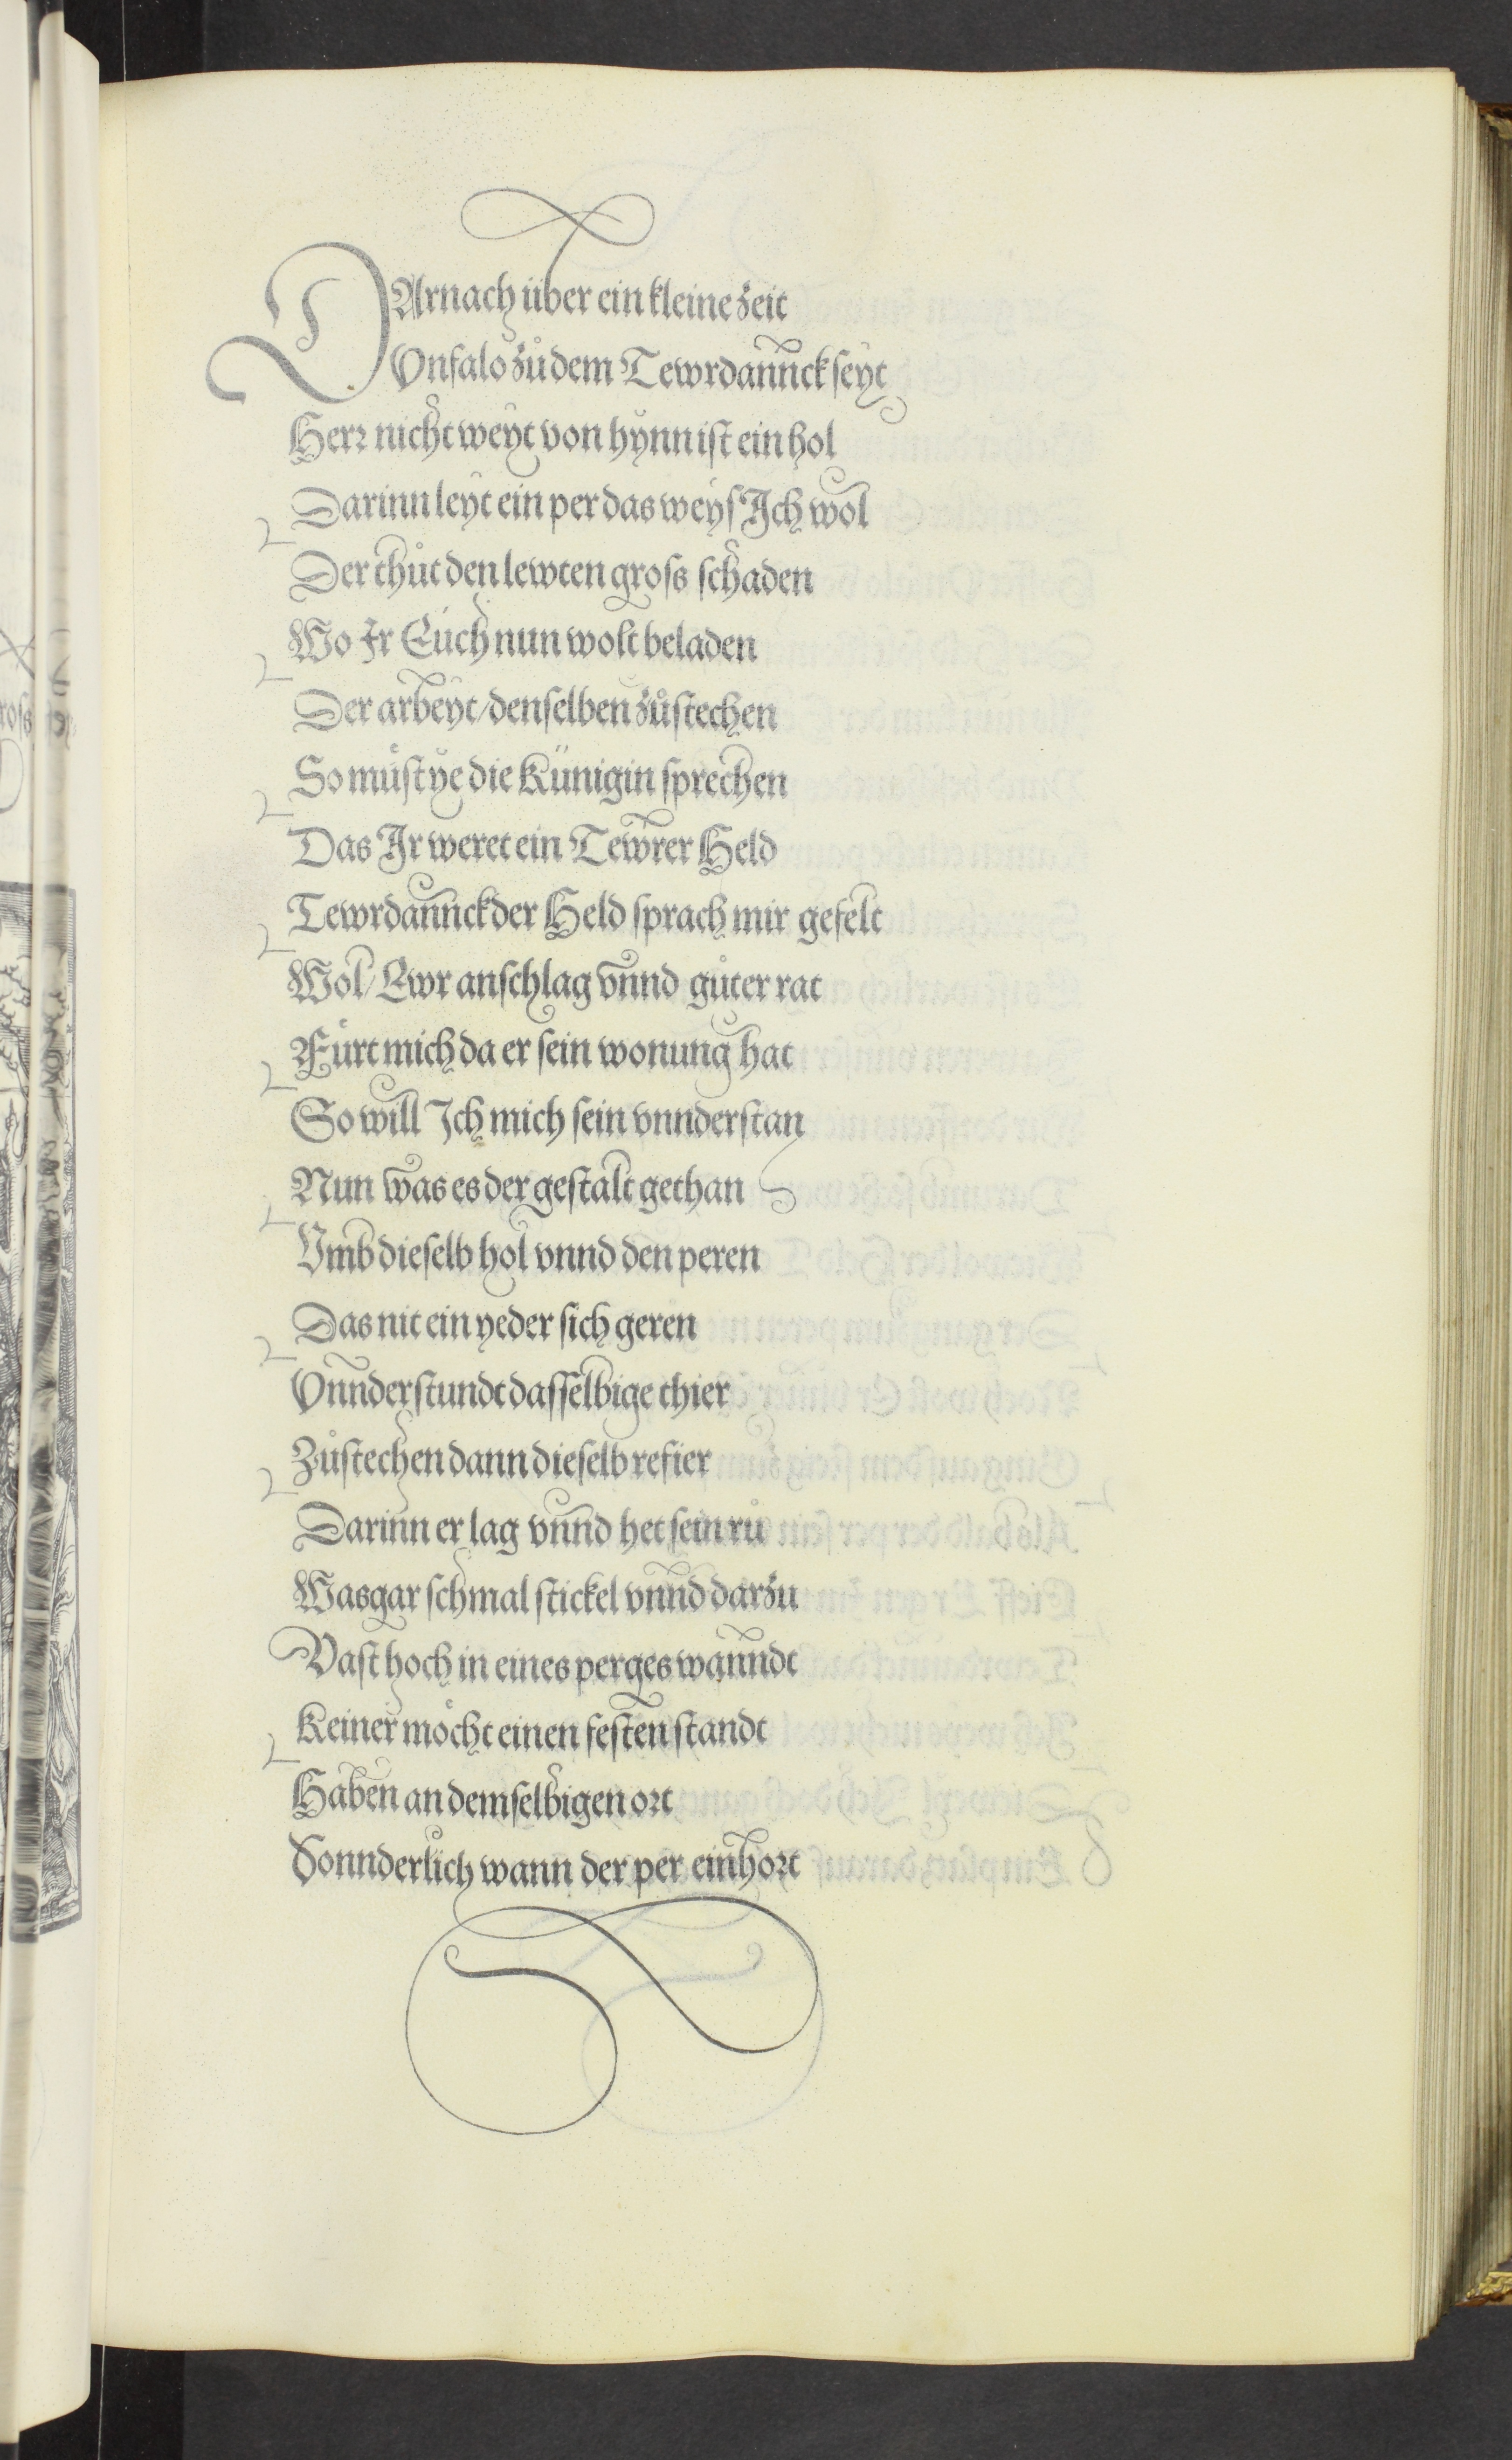 DArnach über ein kleine zeit
Vnfalo zůdem Tewrdannck seyt
Herr nicht weyt von hynn ist ein hol
Darinn leyt ein per das weyſ Ich wol
Der thůt den lewten groſs ſchaden
Wo Ir Eůch nun wolt beladen
Der arbeyt / denſelben zůſtechen
So můſt ye die Künigin ſprechen
Das Ir weret ein Tewrer Held
Tewrdannck der Held ſprach mir gefelt
Wol / Ewr anſchlag vnnd gůter rat
Fůrt mich da er ſein wonung hat
So will Ich mich ſein vnnderſtan
Nun was es der geſtalt gethan
Vmb dieſelb hol vnnd den peren
Das nit ein yeder ſich geren
Vnnderſtundt daſſelbige thier
Zůſtechen dann dieſelb refier
Darinn er lag vnnd het ſein rů
Was gar ſchmal ſtickel vnnd darzu
Vaſt hoch in eines perges wanndt
Keiner mőcht einen feſten ſtandt
Haben an demſelbigen ort
Sonnderlich wann der per einhort